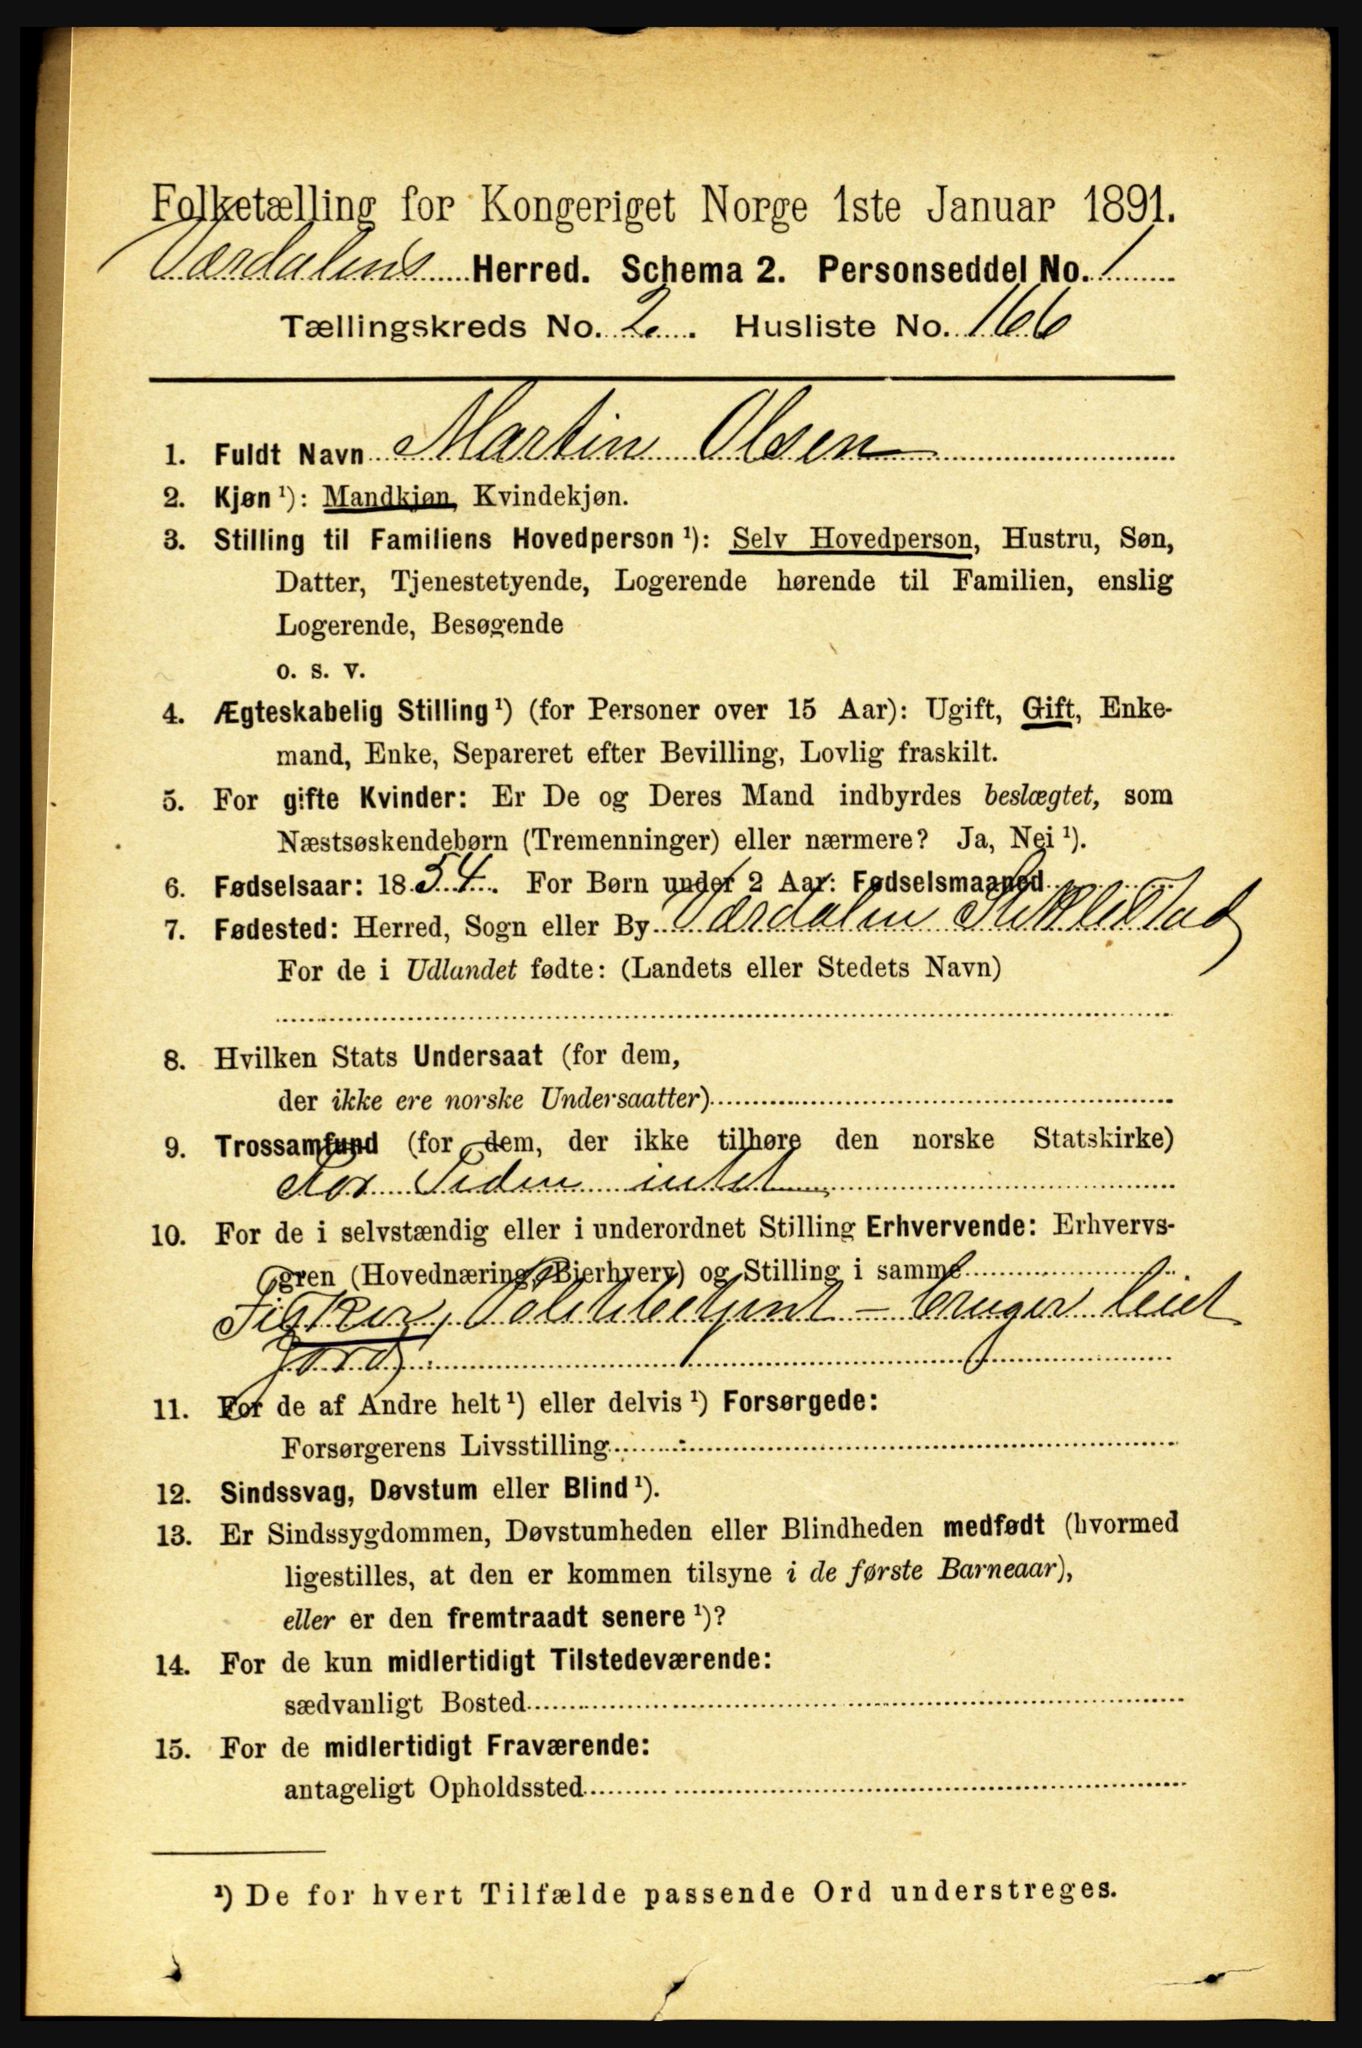 Folketælling for Kongeriget Norge 1ste Januar 1891.
Værdalens Herred. Schema 2. Personseddel No. 1
Tællingskreds No. 2. Husliste No. 166
1. Fuldt Navn Martin Olsen
2. Kjøn ¹): Mandkjøn, Kvindekjøn.
3. Stilling til Familiens Hovedperson ¹): Selv Hovedperson, Hustru, Søn,
Datter, Tjenestetyende, Logerende hørende til Familien, enslig
Logerende, Besøgende
o. s. v.
4. Ægteskabelig Stilling ¹) (for Personer over 15 Aar): Ugift, Gift, Enke-
mand, Enke, Separeret efter Bevilling, Lovlig fraskilt.
5. For gifte Kvinder: Er De og Deres Mand indbyrdes beslægtet, som
Næstsøskendebørn (Tremenninger) eller nærmere? Ja, Nei ¹).
6. Fødselsaar: 1854. For Børn under 2 Aar: Fødselsmaaned
7. Fødested: Herred, Sogn eller By Værdalen Stiklestad
For de i Udlandet fødte: (Landets eller Stedets Navn)
8. Hvilken Stats Undersaat (for dem,
der ikke ere norske Undersaatter)
9. Trossamfund (for dem, der ikke tilhøre den norske Statskirke)
For Tiden intet
10. For de i selvstændig eller i underordnet Stilling Erhvervende: Erhvervs-
gren (Hovednæring, Bierhverv) og Stilling i samme
Fisker, Politibetjent - bruger leiet
Jord
11. For de af Andre helt ¹) eller delvis ¹) Forsørgede:
Forsørgerens Livsstilling
12. Sindssvag, Døvstum eller Blind ¹).
13. Er Sindssygdommen, Døvstumheden eller Blindheden medfødt (hvormed
ligestilles, at den er kommen tilsyne i de første Barneaar),
eller er den fremtraadt senere ¹)?
14. For de kun midlertidigt Tilstedeværende:
sædvanligt Bosted
15. For de midlertidigt Fraværende:
antageligt Opholdssted
¹) De for hvert Tilfælde passende Ord understreges.